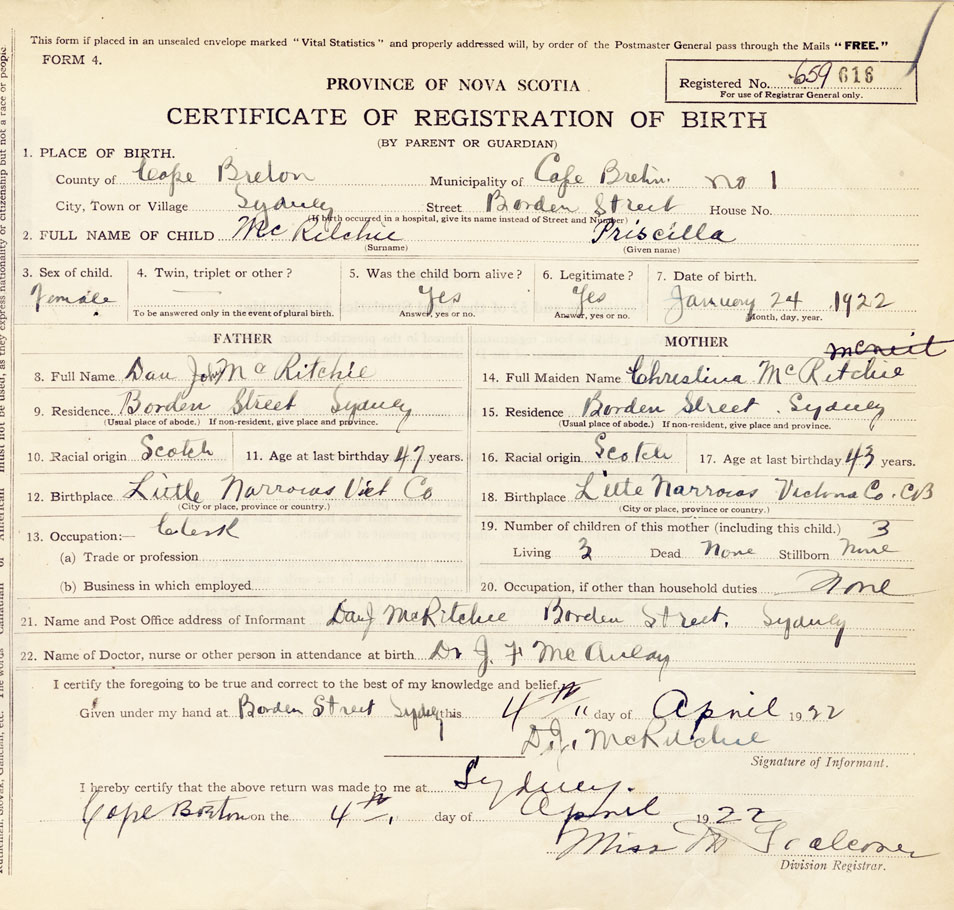 This form if placed in an unsealed envelope marked "Vital Statistics" and properly addressed will, by order of the Postmaster General pass through the Mails "FREE."
FORM 4.
Registered No. 659 618
For use of Registrar General only.
PROVINCE OF NOVA SCOTIA
CERTIFICATE OF REGISTRATION OF BIRTH
(BY PARENT OR GUARDIAN)
1. PLACE OF BIRTH.
County of Cape Breton Municipality of Cape Breton. No 1
City, Town or Village Sydney Street Borden Street House No.
(If birth occurred in a hospital, give its name instead of Street and Number)
2. FULL NAME OF CHILD McRitchie Priscilla
(Surname) (Given name)
3. Sex of child. 4. Twin, triplet or other? 5. Was the child born alive? 6. Legitimate? 7. Date of birth.
Female Yes Yes January 24 1922
To be answered only in the event of plural birth. Answer, yes or no. Answer, yes or no. Month, day, year.
FATHER MOTHER
8. Full Name Dan John McRitchie 14. Full Maiden Name Christina McRitchie
9. Residence Borden Street Sydney 15. Residence Borden Street. Sydney
(Usual place of abode.) If non-resident, give place and province. (Usual place of abode.) If non-resident, give place and province.
10. Racial origin Scotch 11. Age at last birthday 47 years. 16. Racial origin Scotch 17. Age at last birthday 43 years.
12. Birthplace Little Narrows Vict Co 18. Birthplace Little Narrows Victoria Co. CB
(City or place, province or country.) (City or place, province or country.)
13. Occupation:— Clerk 19. Number of children of this mother (including this child.) 3
(a) Trade or profession Living 3 Dead None Stillborn None
(b) Business in which employed 20. Occupation, if other than household duties None
21. Name and Post Office address of Informant Dan J McRitchie Borden Street. Sydney
22. Name of Doctor, nurse or other person in attendance at birth Dr J. F McAulay
I certify the foregoing to be true and correct to the best of my knowledge and belief.
Given under my hand at Borden Street Sydney this 4th day of April 1922
D.J. McRitchie
Signature of Informant.
I hereby certify that the above return was made to me at Sydney.
Cape Breton on the 4th. day of April 1922
Miss M Falconer
Division Registrar.